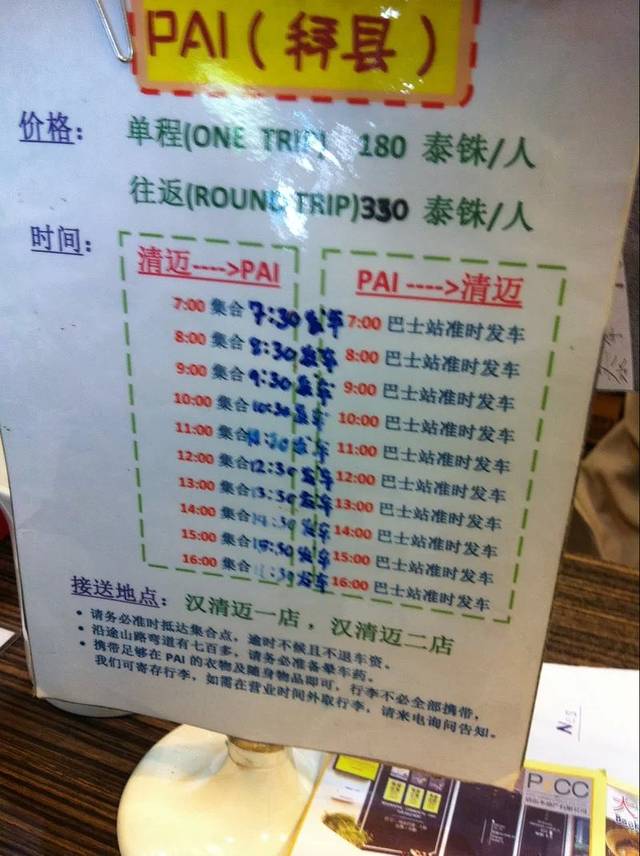 PAI（拜县）
价格： 单程(ONE TRIP) 180 泰铢/人
往返(ROUND TRIP)330 泰铢/人
时间：
清迈---->PAI
7:00 集合 7:30发车
8:00 集合 8:30发车
9:00 集合 9:30发车
10:00 集合 10:30发车
11:00 集合 11:30发车
12:00 集合 12:30发车
13:00 集合 13:30发车
14:00 集合 14:30发车
15:00 集合 15:30发车
16:00 集合 16:30发车
PAI ---->清迈
7:00 巴士站准时发车
8:00 巴士站准时发车
9:00 巴士站准时发车
10:00 巴士站准时发车
11:00 巴士站准时发车
12:00 巴士站准时发车
13:00 巴士站准时发车
14:00 巴士站准时发车
15:00 巴士站准时发车
16:00 巴士站准时发车
接送地点： 汉清迈一店，汉清迈二店
• 请务必准时抵达集合点，逾时不候且不退车资。
• 沿途山路弯道有七百多，请务必准备晕车药。
• 携带足够在 PAI 的衣物及随身物品即可，行李不必全部携带，
我们可寄存行李，如需在营业时间外取行李，请来电询问告知。